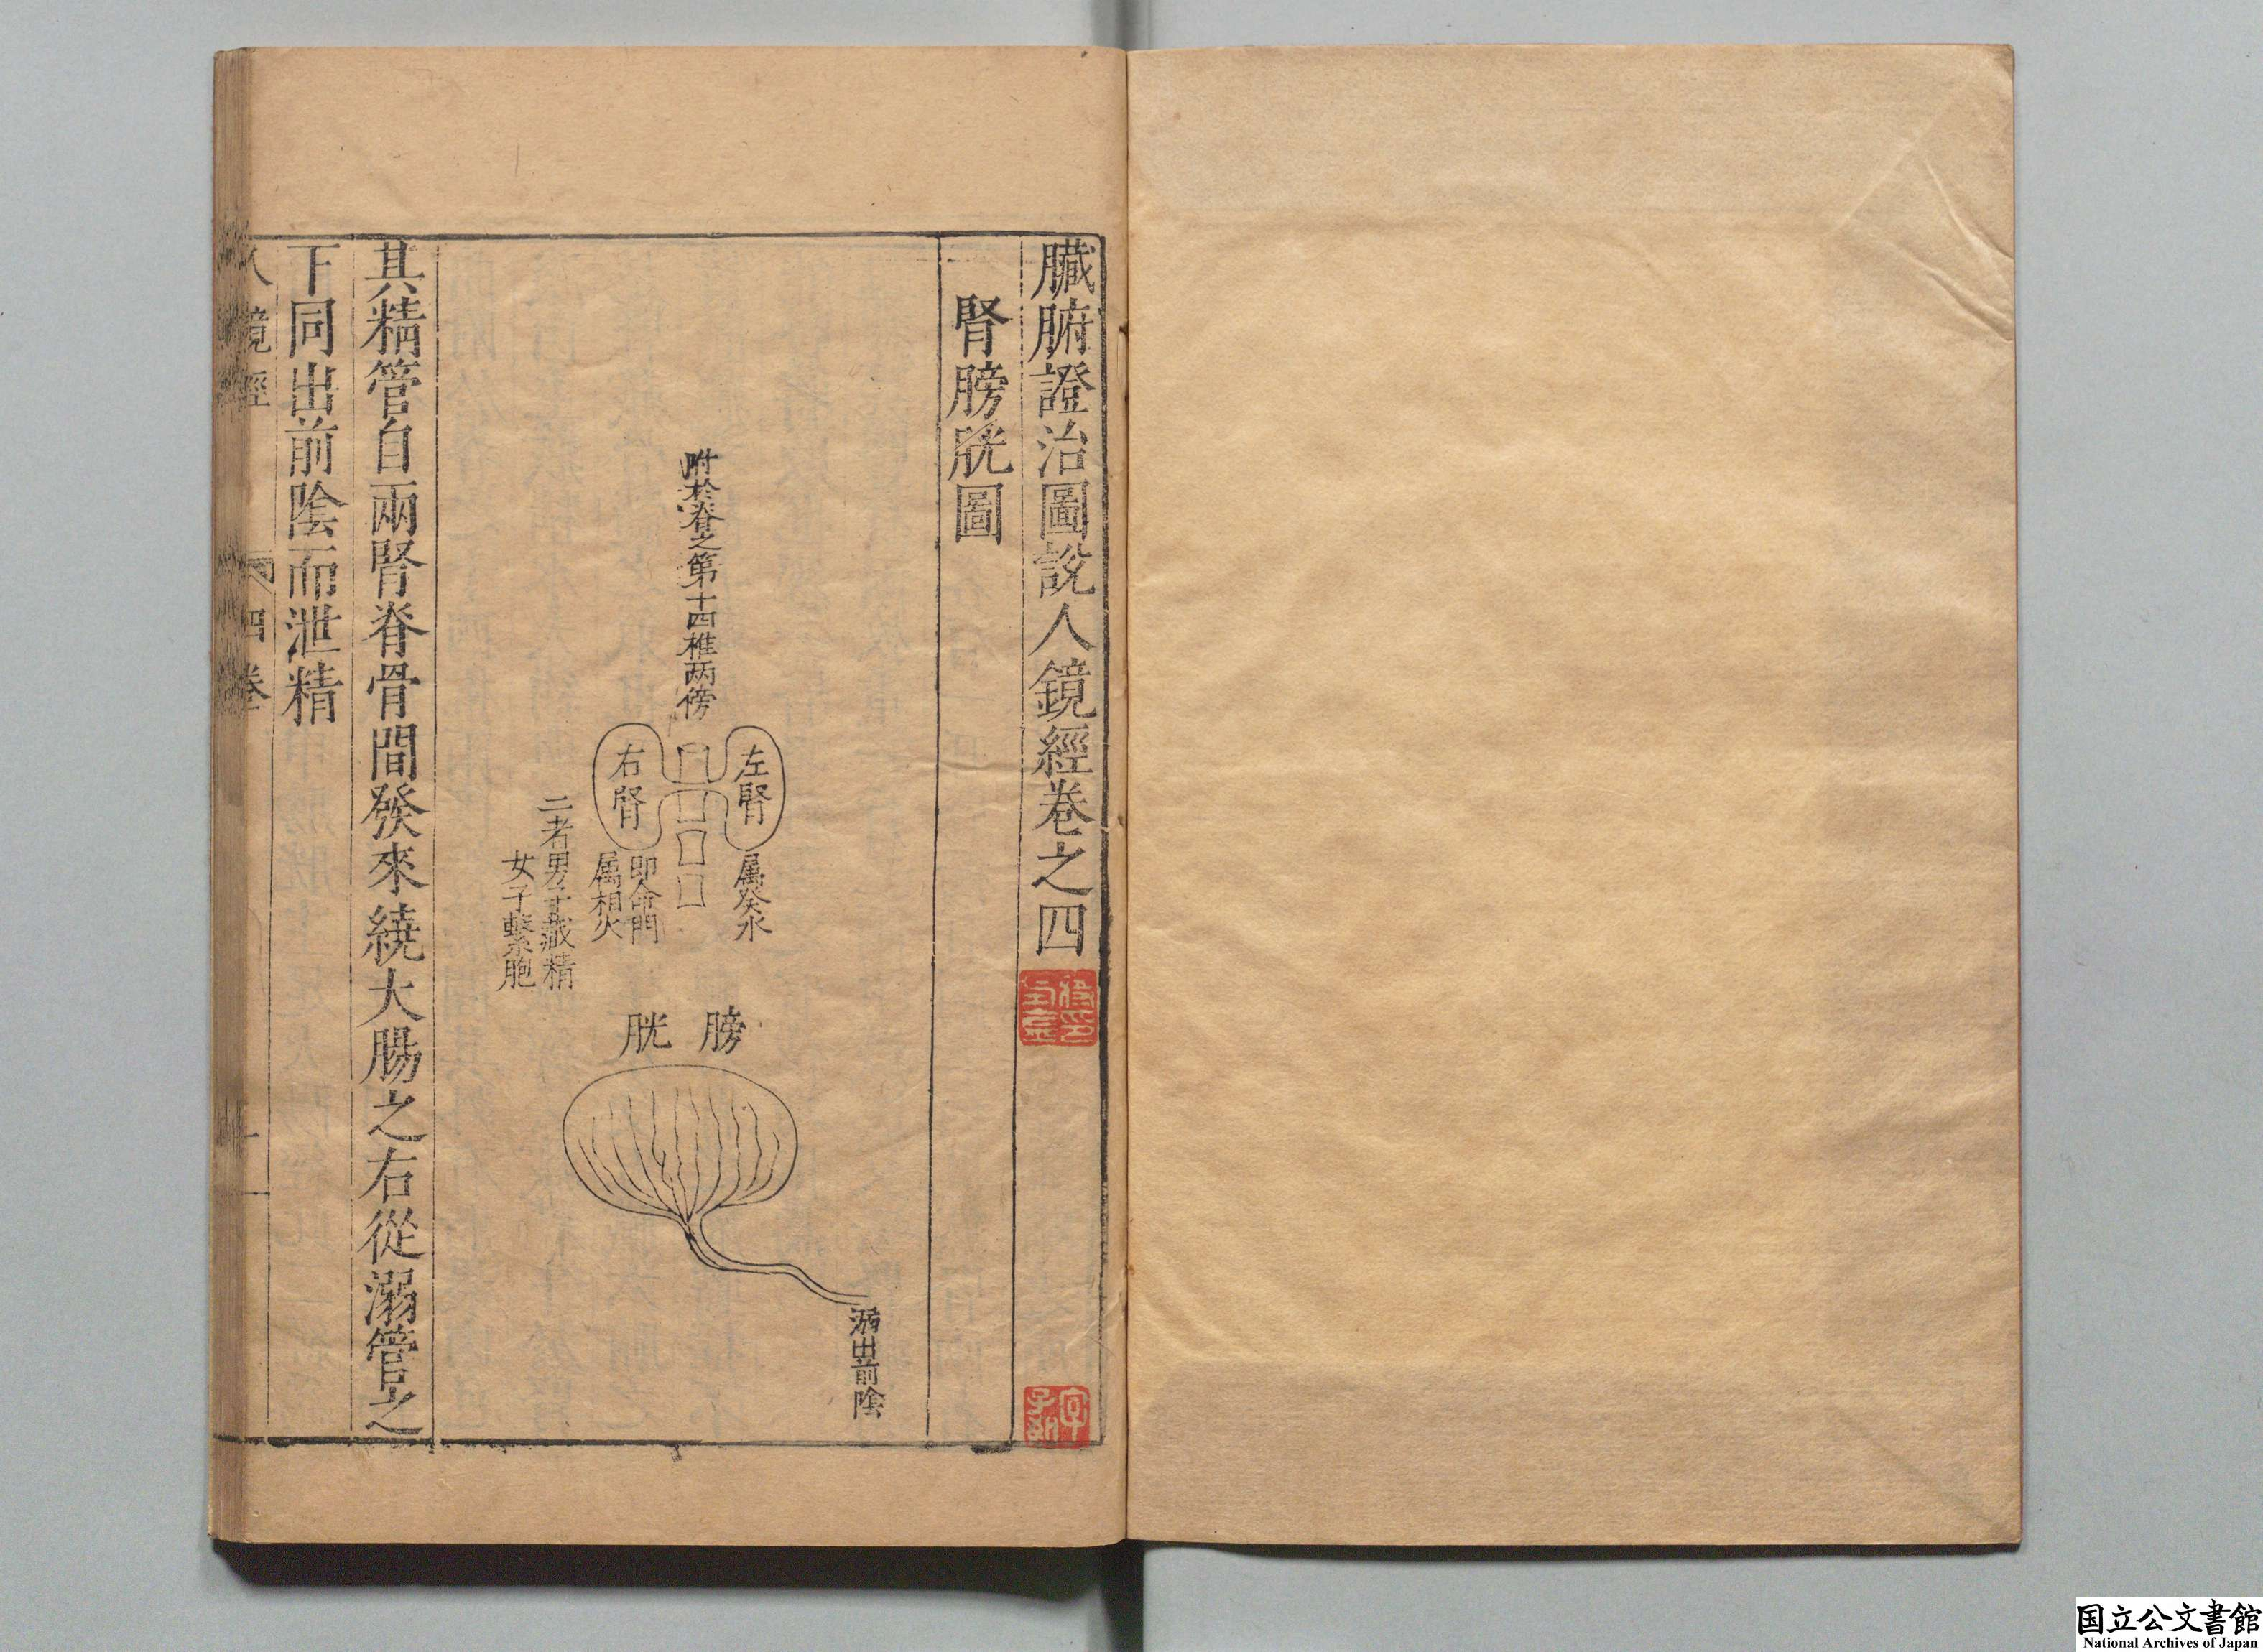 臟腑證治圖說人鏡經卷之四
腎膀胱圖
附於脊之第十四椎两傍
左腎
右腎
属癸水
即命門
属相火
二者男子藏精
女子繫胞
膀胱
溺出前陰
其精管自兩腎脊骨間發來繞大腸之右從溺管之
下同出前陰而泄精
人鏡經
四卷
一
国立公文書館
National Archives of Japan